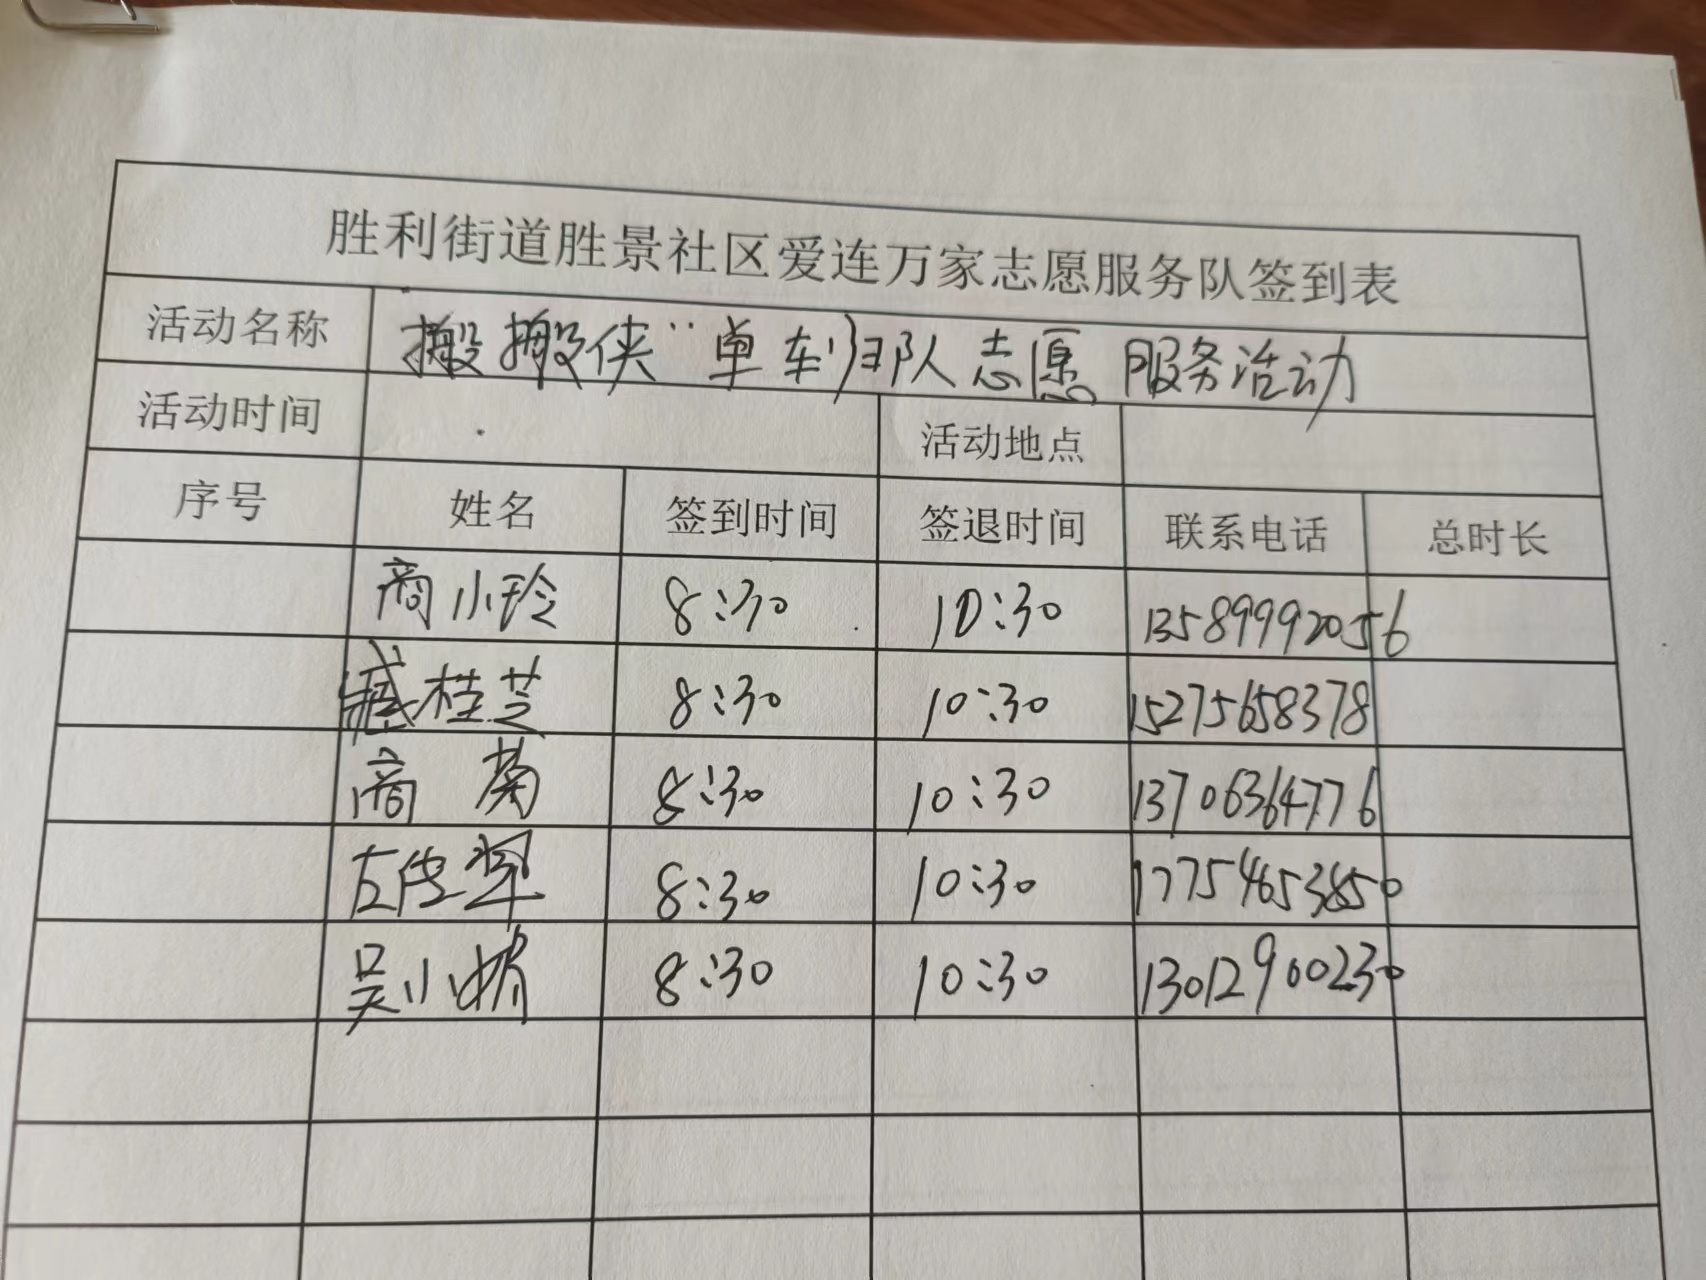 胜利街道胜景社区爱连万家志愿服务队签到表
活动名称 搬搬侠"单车归队志愿服务活动
活动时间 活动地点
序号 姓名 签到时间 签退时间 联系电话 总时长
商小玲 8:30 10:30 13589992056
臧桂芝 8:30 10:30 15275658378
商菊 8:30 10:30 13706364776
8:30 10:30 17754653850
吴小娟 8:30 10:30 13012900230